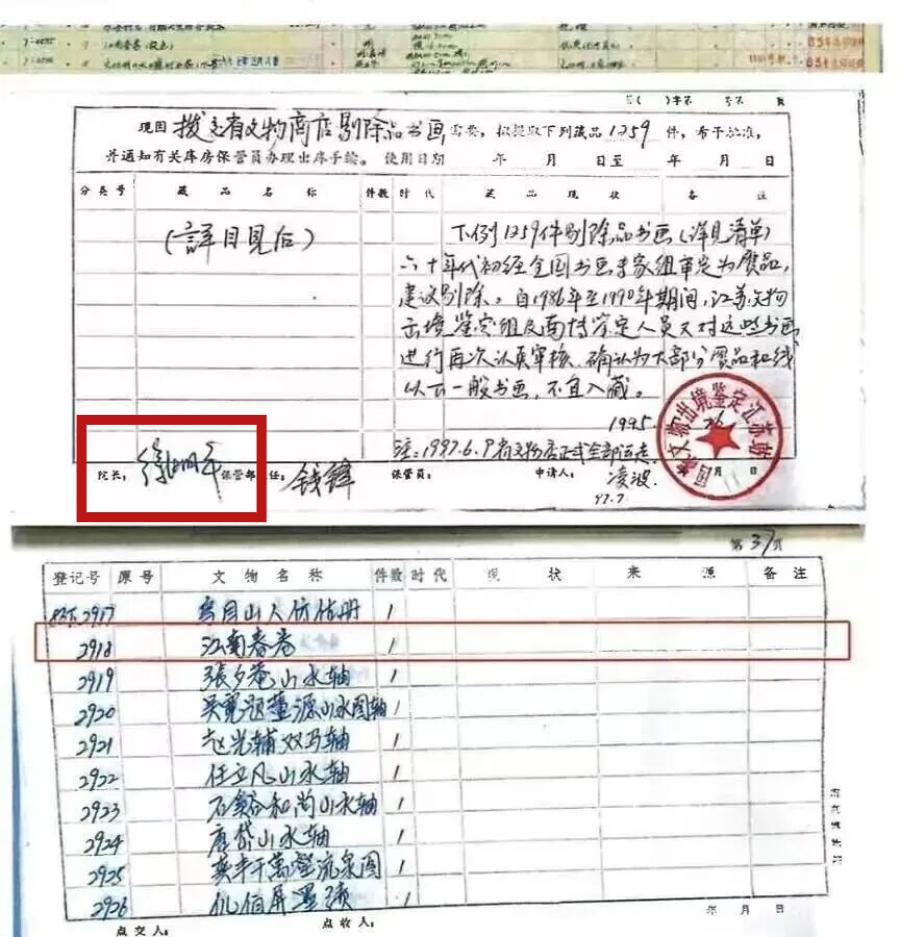 现因 拨交省文物商店剔除品书画 需要,拟提取下列藏品 1259 件,希予批准,
并通知有关库房保管员办理出库手续。 使用日期 年 月 日至 年 月 日
分类号 藏品名称 件数 时代 藏品现状 备注
(詳目見后)
下列1259件剔除品书画(详见清单)
六十年代初经全国书画专家组审定为赝品,
建议剔除。自1986年至1990年期间,江苏文物
出境鉴定组及南博鉴定人员又对这些书画
进行再次认真审核,确认为大部分赝品和线
以下一般书画,不宜入藏。
1995.
注:1997.6.9省文物店正式全部运走
凌波.
97.7.
院长: 徐湖平 保管部主任: 钱锋 保管员: 申请人:
国家文物出境鉴定江苏站
第 37 页
登记号 原号 文物名称 件数 时代 现状 来源 备注
2917 1
2918 江南春卷 1
2919 張夕庵山水轴 1
2920 吴寬题董源山水图轴 1
2921 赵光辅双马轴 1
2922 任立凡山水轴 1
2923 石谿和尚山水轴 1
2924 唐岱山水轴 1
2925 奚丰千萬壑流泉图 1
2926 1
年 月 日
点交人: 点收人: